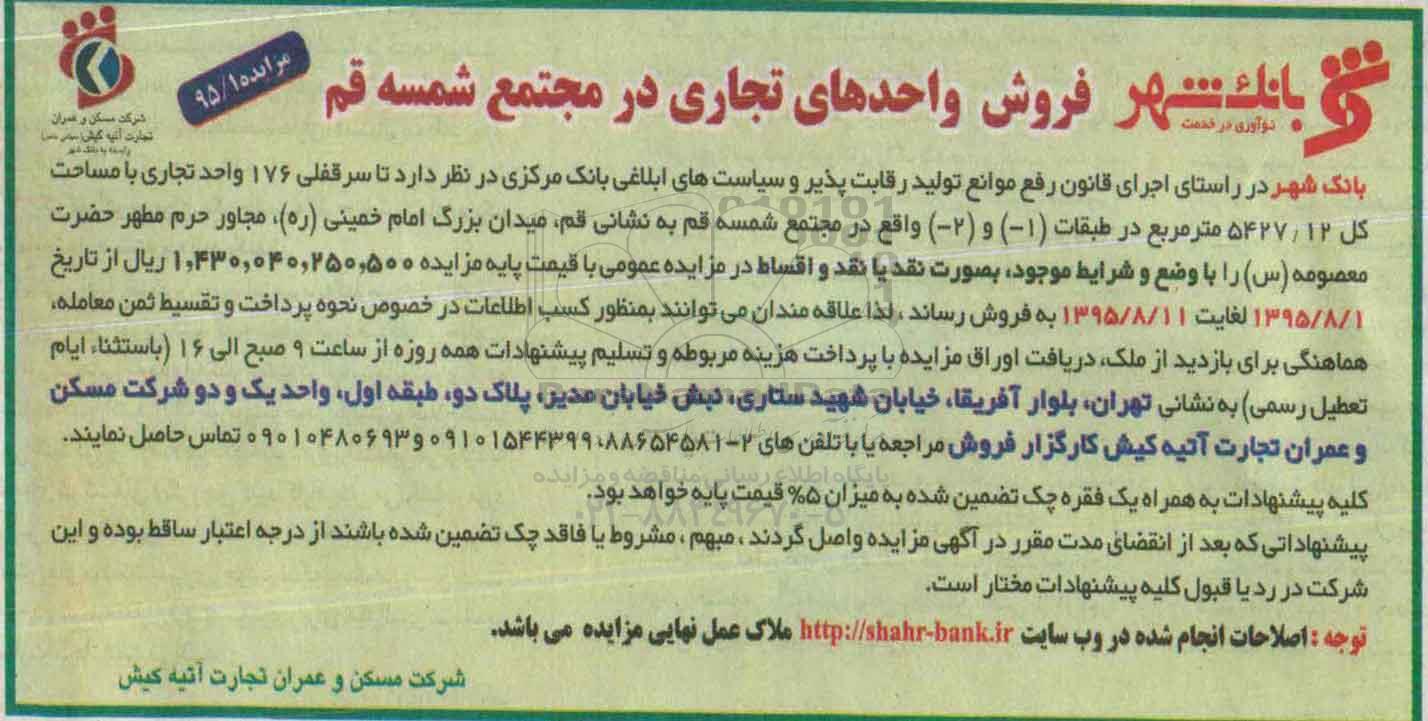 بانک شهر
نوآوری در خدمت
فروش واحدهای تجاری در مجتمع شمسه قم
مزایده ۹۵/۱
شرکت مسکن و عمران
تجارت آتیه کیش (سهامی خاص)
وابسته به بانک شهر
بانک شهر در راستای اجرای قانون رفع موانع تولید رقابت پذیر و سیاست های ابلاغی بانک مرکزی در نظر دارد تا سرقفلی ۱۷۶ واحد تجاری با مساحت
کل ۵۴۲۷٫۱۲ مترمربع در طبقات (۱-) و (۲-) واقع در مجتمع شمسه قم به نشانی قم، میدان بزرگ امام خمینی (ره)، مجاور حرم مطهر حضرت
معصومه (س) را با وضع و شرایط موجود، بصورت نقد یا نقد و اقساط در مزایده عمومی با قیمت پایه مزایده ۱,۴۳۰,۰۴۰,۲۵۰,۵۰۰ ریال از تاریخ
۱۳۹۵/۸/۱ لغایت ۱۳۹۵/۸/۱۱ به فروش رساند، لذا علاقه مندان می توانند بمنظور کسب اطلاعات در خصوص نحوه پرداخت و تقسیط ثمن معامله،
هماهنگی برای بازدید از ملک، دریافت اوراق مزایده با پرداخت هزینه مربوطه و تسلیم پیشنهادات همه روزه از ساعت ۹ صبح الی ۱۶ (باستثناء ایام
تعطیل رسمی) به نشانی تهران، بلوار آفریقا، خیابان شهید ستاری، نبش خیابان مدیر، پلاک دو، طبقه اول، واحد یک و دو شرکت مسکن
و عمران تجارت آتیه کیش کارگزار فروش مراجعه یا با تلفن های ۲-۸۸۶۵۴۵۸۱، ۰۹۱۰۱۵۴۴۳۹۹ و ۰۹۰۱۰۴۸۰۶۹۳ تماس حاصل نمایند.
پایگاه اطلاع رسانی مناقصه و مزایده
کلیه پیشنهادات به همراه یک فقره چک تضمین شده به میزان ۵% قیمت پایه خواهد بود.
۰۲۱-۸۸۳۴۹۶۷۰-۵
پیشنهاداتی که بعد از انقضای مدت مقرر در آگهی مزایده واصل گردند، مبهم، مشروط یا فاقد چک تضمین شده باشند از درجه اعتبار ساقط بوده و این
شرکت در رد یا قبول کلیه پیشنهادات مختار است.
توجه : اصلاحات انجام شده در وب سایت http://shahr-bank.ir ملاک عمل نهایی مزایده می باشد.
شرکت مسکن و عمران تجارت آتیه کیش